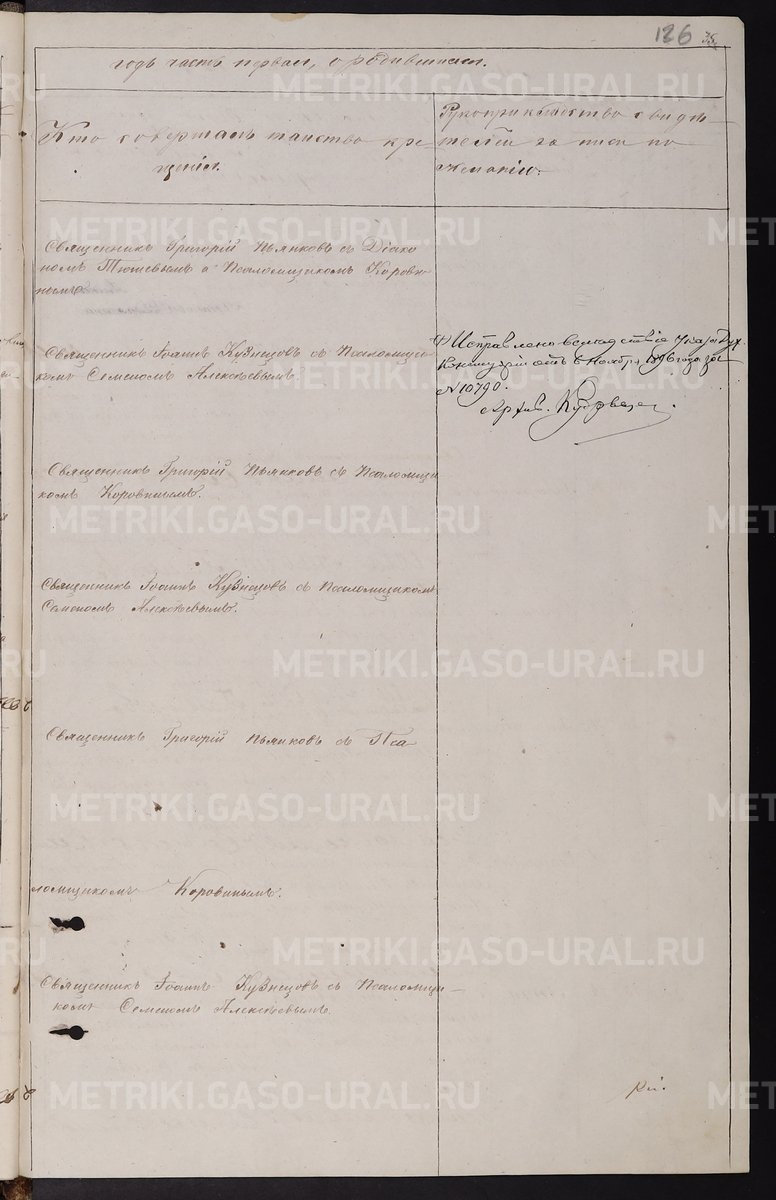 126
35
годъ часть первая, о родившихся.
Кто совершалъ таинство кре-
щенія.
Рукоприкладство свидѣ-
телей записи по
желанію.
Священникъ Григорій Пьянковъ съ Діако
номъ и Псаломщикомъ Корови-
нымъ
Священникъ Іоаннъ Кузнецовъ съ Псаломщи-
комъ Семеномъ Алексѣевымъ.
Исправлено вслѣдствіе Указа Дух.
Консисторіи отъ 6 Ноября 1896 года за
№ 10790.
Священникъ Григорій Пьянковъ съ Псаломщи
комъ Коровинымъ.
Священникъ Іоаннъ Кузнецовъ съ Псаломщикомъ
Семеномъ Алексѣевымъ.
Священникъ Григорій Пьянковъ съ Пса
ломщикомъ Коровинымъ.
Священникъ Іоаннъ Кузнецовъ съ Псаломщи-
комъ Семеномъ Алексѣевымъ.
METRIKI.GASO-URAL.RU